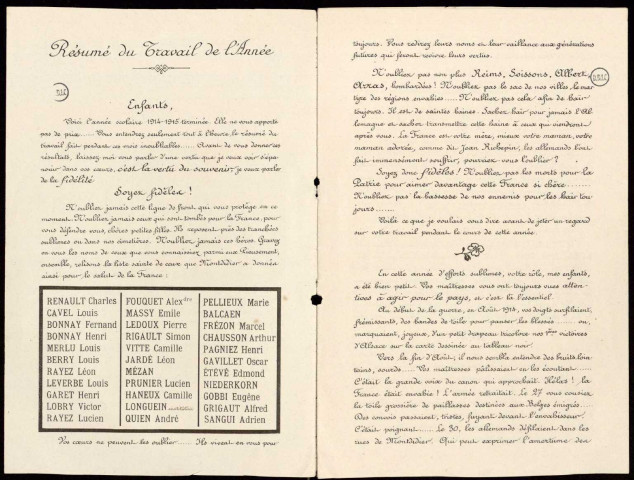 Résumé du Travail de l'Année
Enfants,
Voici l'année scolaire 1914-1915 terminée. Elle ne vous apporte
pas de prix...... Vous entendrez seulement tout à l'heure, le résumé du
travail fait pendant ces mois inoubliables..... Avant de vous donner ces
résultats, laissez-moi vous parler d'une vertu que je veux voir s'épa-
nouir dans vos cœurs, c'est la vertu du souvenir, je veux parler
de la fidélité
Soyez fidèles !
N'oubliez jamais cette ligne de front, qui vous protège en ce
moment. N'oubliez jamais ceux qui sont tombés pour la France, pour
vous défendre vous, chères petites filles. Ils reposent près des tranchées
sublimes ou dans nos cimetières. N'oubliez jamais ces héros. Gravez
en vous les noms de ceux que vous connaissiez parmi eux. Pieusement,
ensemble, relisons la liste sainte de ceux que Montdidier a donnés
ainsi pour le salut de la France :
RENAULT Charles
CAVEL Louis
BONNAY Fernand
BONNAY Henri
MERLU Louis
BERRY Louis
RAYEZ Léon
LEVERBE Louis
GARET Henri
LOBRY Victor
RAYEZ Lucien
FOUQUET Alexdre
MASSY Emile
LEDOUX Pierre
RIGAULT Simon
VITTE Camille
JARDÉ Léon
MÉZAN
PRUNIER Lucien
HANEUX Camille
LONGUEIN
QUIEN André
PELLIEUX Marie
BALCAEN
FRÉZON Marcel
CHAUSSON Arthur
PAGNIEZ Henri
GAVILLET Oscar
ÉTÉVÉ Edmond
NIEDERKORN
GOBBI Eugène
GRIGAUT Alfred
SANGUI Adrien
Vos cœurs ne peuvent les oublier...... Ils vivent en vous pour
toujours. Vous redirez leurs noms et leur vaillance aux générations
futures qui feront revivre leurs vertus.
N'oubliez pas non plus Reims, Soissons, Albert,
Arras, bombardées ! N'oubliez pas le sac de nos villes, le mar
tyre des régions envahies...... N'oubliez pas cela afin de haïr
toujours. Il est de saintes haines. Sachez haïr pour jamais l'Al-
lemagne et sachez transmettre cette haine à ceux qui viendront
après vous. La France est votre mère, mieux votre maman, votre
maman adorée, comme dit Jean Richepin ; les allemands l'ont
fait immensément souffrir, pourriez-vous l'oublier ?
Soyez donc fidèles ! N'oubliez pas les morts pour la
Patrie pour aimer davantage cette France si chère........
N'oubliez pas la bassesse de nos ennemis pour les haïr tou
jours........
Voilà ce que je voulais vous dire avant de jeter un regard
sur votre travail pendant le cours de cette année.
En cette année d'efforts sublimes, votre rôle, mes enfants,
a été bien petit. Vos maîtresses vous ont toujours vues atten-
tives à agir pour le pays, et c'est là l'essentiel.
Au début de la guerre, en Août 1914, vos doigts surfilaient,
frémissants, des bandes de toile pour panser les blessés...... ou,
marquaient, joyeux, d'un petit drapeau tricolore nos 1ères victoires
d'Alsace sur la carte dessinée au tableau noir.
Vers la fin d'Août, il nous sembla entendre des bruits loin
tains, sourds...... Vos maîtresses pâlissaient en les écoutant......
C'était la grande voix du canon qui approchait. Hélas ! la
France était envahie ! L'armée retraitait. Le 27 vous cousiez
la toile grossière de paillasses destinées aux Belges émigrés....
Des convois passaient, tristes, fuyant devant l'envahisseur.
C'était poignant...... Le 30, les allemands défilaient dans les
rues de Montdidier. Qui peut exprimer l'amertume des